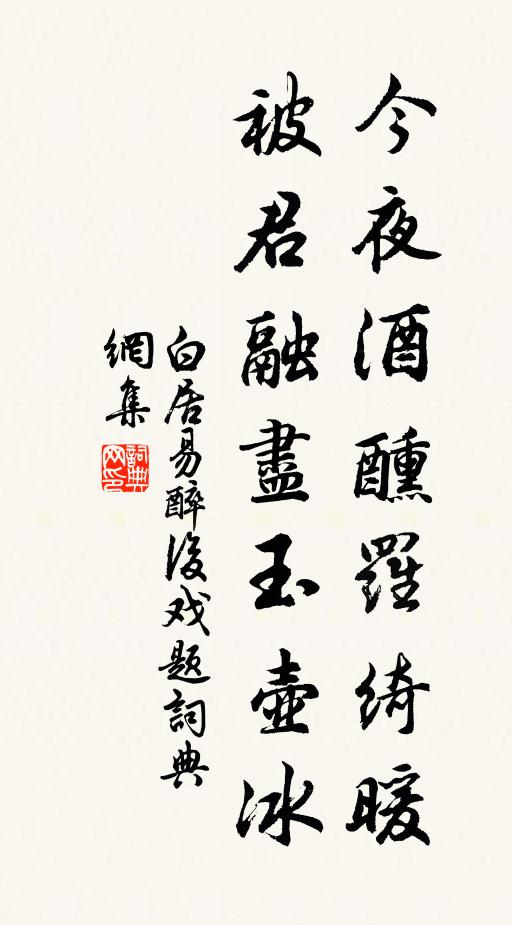 今夜酒醺羅綺暖
被君融盡玉壺冰
白居易醉後戏题詞典
網集
詞典
网印